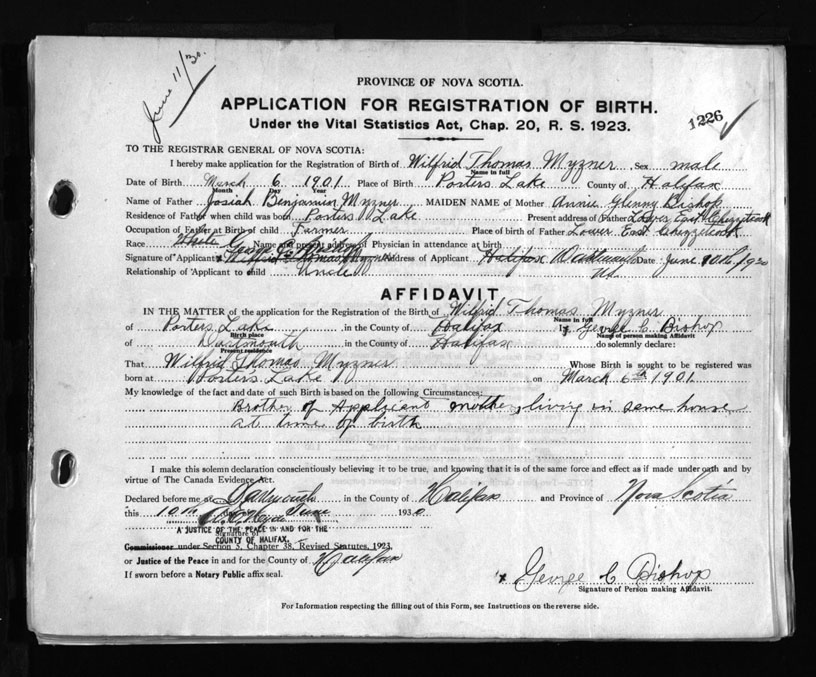 June 11/30.
PROVINCE OF NOVA SCOTIA.
APPLICATION FOR REGISTRATION OF BIRTH.
1226
Under the Vital Statistics Act, Chap. 20, R. S. 1923.
TO THE REGISTRAR GENERAL OF NOVA SCOTIA:
I hereby make application for the Registration of Birth of Wilfrid Thomas Myzner Sex male
Name in full
Date of Birth March 6 1901 Place of Birth Porters Lake County of Halifax
Month Day Year
Name of Father Josiah Benjamin Myzner MAIDEN NAME of Mother Annie Glenny Bishop
Residence of Father when child was born Porters Lake Present address of Father Lower East Chezzetcook
Occupation of Father at Birth of child Farmer Place of birth of Father Lower East Chezzetcook
Race White Name and present address of Physician in attendance at birth
Signature of Applicant George C Bishop Wilfrid Thomas Myzner Address of Applicant Halifax Date June 10th/1930
Relationship of Applicant to child Uncle
AFFIDAVIT
IN THE MATTER of the application for the Registration of the Birth of Wilfrid Thomas Myzner
Name in full
of Porters Lake in the County of Halifax I, George C Bishop
Birth place Name of person making Affidavit
of Dartmouth in the County of Halifax do solemnly declare:
Present residence
That Wilfrid Thomas Myzner Whose Birth is sought to be registered was
born at Porters Lake on March 6th 1901
My knowledge of the fact and date of such Birth is based on the following Circumstances:
Brother of Applicant mother, living in same house
at time of birth
I make this solemn declaration conscientiously believing it to be true, and knowing that it is of the same force and effect as if made under oath and by
virtue of The Canada Evidence Act.
Declared before me at Dartmouth in the County of Halifax and Province of Nova Scotia
this 10th day of June 1930
A JUSTICE OF THE PEACE IN AND FOR THE
Signature of
COUNTY OF HALIFAX.
Commissioner under Section 5, Chapter 38, Revised Statutes, 1923
or Justice of the Peace in and for the County of Halifax
If sworn before a Notary Public affix seal.
x George C Bishop
Signature of Person making Affidavit.
For Information respecting the filling out of this Form, see Instructions on the reverse side.